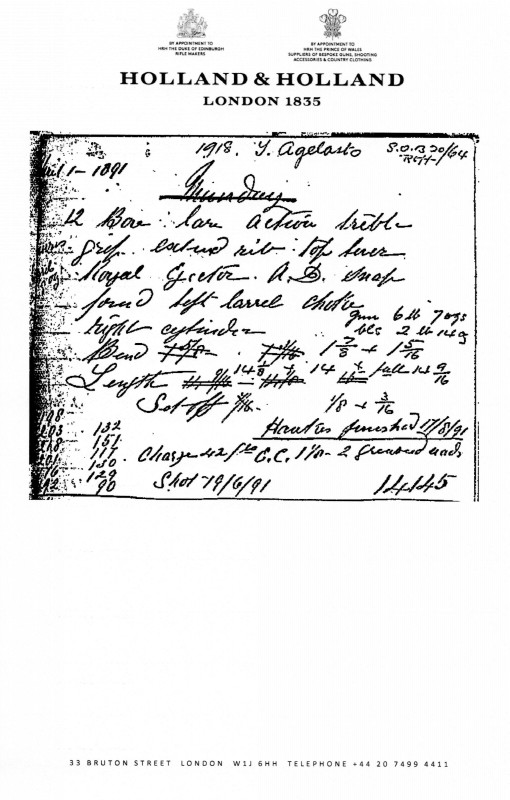 BY APPOINTMENT TO
HRH THE DUKE OF EDINBURGH
RIFLE MAKERS
BY APPOINTMENT TO
HRH THE PRINCE OF WALES
SUPPLIERS OF BESPOKE GUNS, SHOOTING
ACCESSORIES & COUNTRY CLOTHING
HOLLAND & HOLLAND
LONDON 1835
1918. T. Agelasto S.O.B 20/64
1 - 1891
12 Bore bar action treble
grip extend rib top lever
Royal Ejector A.D. snap
found left barrel choke
right cylinder gun 6 lb 7 ozs
bls 2 lb 14 oz
Bend 1 7/8 + 1 5/16
Length 14 3/8 + 14 + full 14 9/16
Set off 1/8 + 3/16
Hawkes finished 17/8/91
132
151
117
130
129
90
Charge 42 grs C.C. 1 1/8 - 2 greased wads
Shot 19/6/91 14145
33 BRUTON STREET LONDON W1J 6HH TELEPHONE +44 20 7499 4411